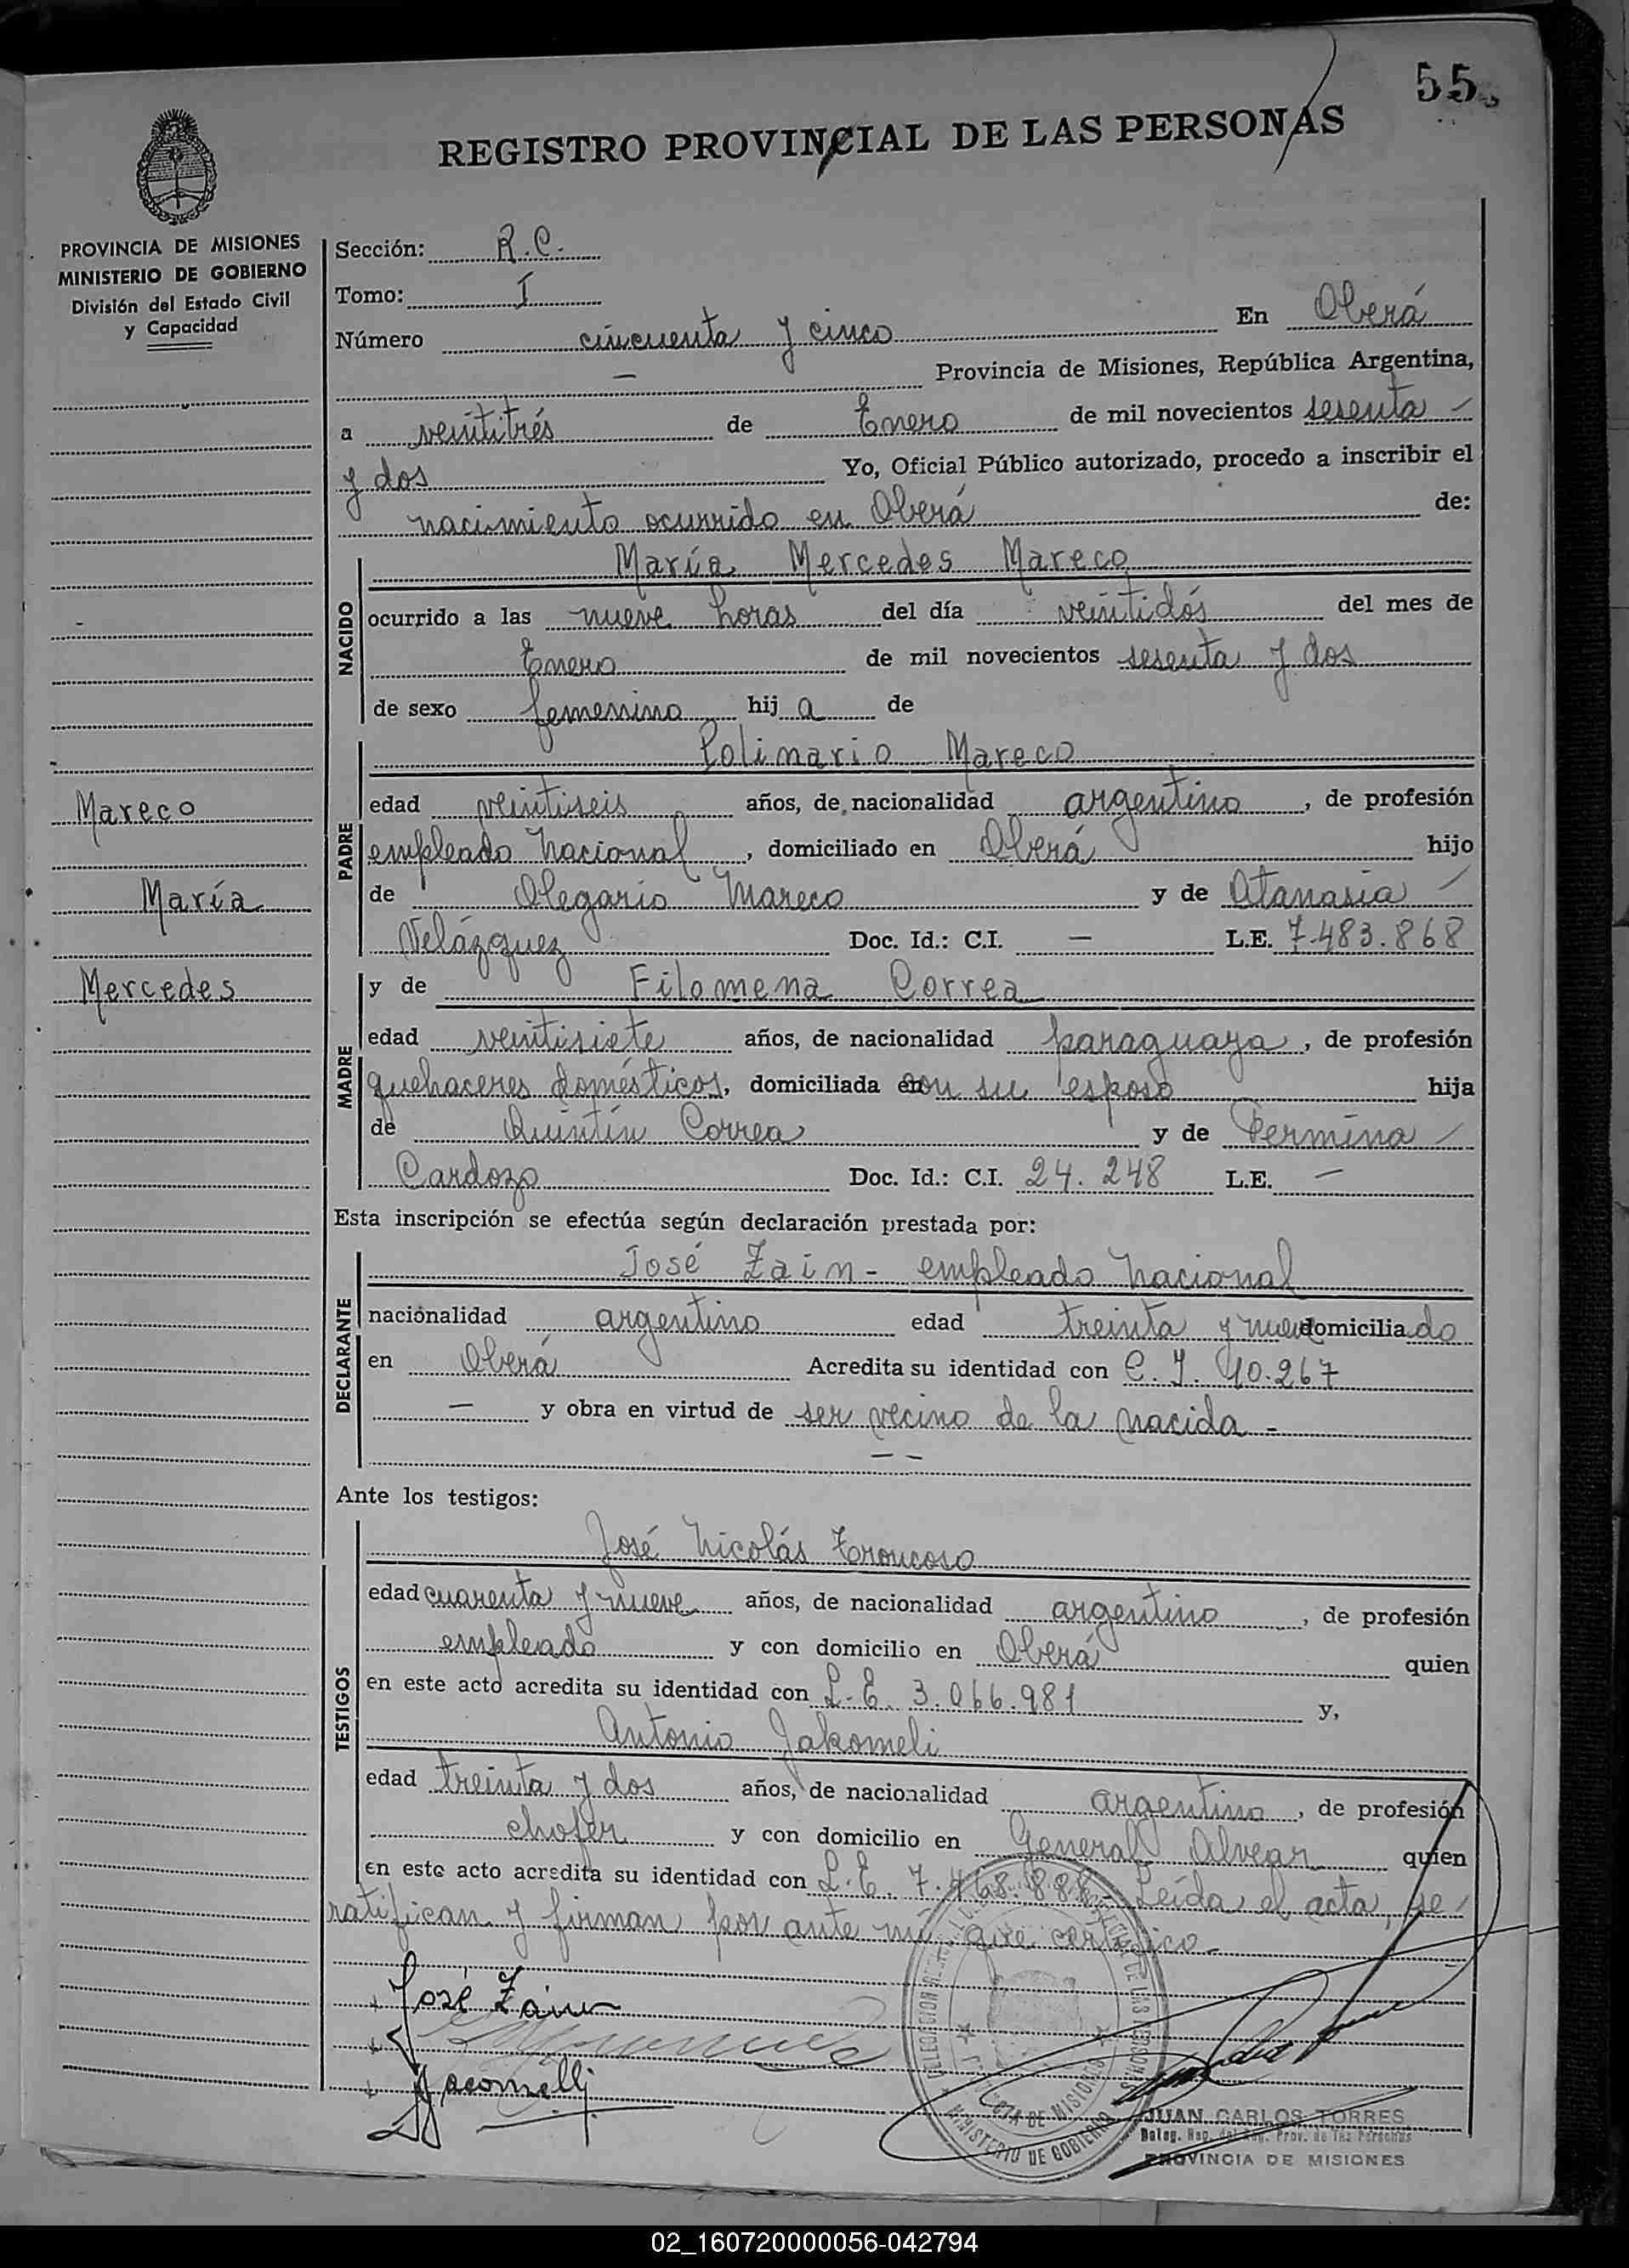 55
REGISTRO PROVINCIAL DE LAS PERSONAS
PROVINCIA DE MISIONES
MINISTERIO DE GOBIERNO
División del Estado Civil
y Capacidad
Mareco
María
Mercedes
Sección: R.C.
Tomo: I
Número cincuenta y cinco En Oberá
— Provincia de Misiones, República Argentina,
a veintitrés de Enero de mil novecientos sesenta —
y dos Yo, Oficial Público autorizado, procedo a inscribir el
nacimiento ocurrido en Oberá de:
NACIDO
María Mercedes Mareco
ocurrido a las nueve horas del día veintidós del mes de
Enero de mil novecientos sesenta y dos
de sexo femenino hija de
PADRE
Polinario Mareco
edad veintiseis años, de nacionalidad argentino, de profesión
empleado Nacional, domiciliado en Oberá hijo
de Olegario Mareco y de Atanasia —
Velázquez Doc. Id.: C.I. — L.E. 7.483.868
MADRE
y de Filomena Correa
edad veintisiete años, de nacionalidad paraguaya, de profesión
quehaceres domésticos, domiciliada en con su esposo hija
de Quintín Correa y de Fermina —
Cardozo Doc. Id.: C.I. 24.248 L.E. —
Esta inscripción se efectúa según declaración prestada por:
DECLARANTE
José Zain - empleado Nacional
nacionalidad argentino edad treinta y nueve domiciliado
en Oberá Acredita su identidad con C.I. 40.267
— y obra en virtud de ser vecino de la nacida -
— —
Ante los testigos:
TESTIGOS
José Nicolás Troncoso
edad cuarenta y nueve años, de nacionalidad argentino, de profesión
empleado y con domicilio en Oberá quien
en este acto acredita su identidad con L.E. 3.066.981 y,
Antonio Jakomeli
edad treinta y dos años, de nacionalidad argentino, de profesión
chofer y con domicilio en General Alvear quien
en este acto acredita su identidad con L.E. 7.468.888- Leída el acta, se
ratifican y firman por ante mí que certifico.
José Zain
Jacomelli
DE LAS PERSONAS
MINISTERIO DE GOBIERNO
DE MISIONES
JUAN CARLOS TORRES
Prov. de las Personas
PROVINCIA DE MISIONES
02_160720000056-042794